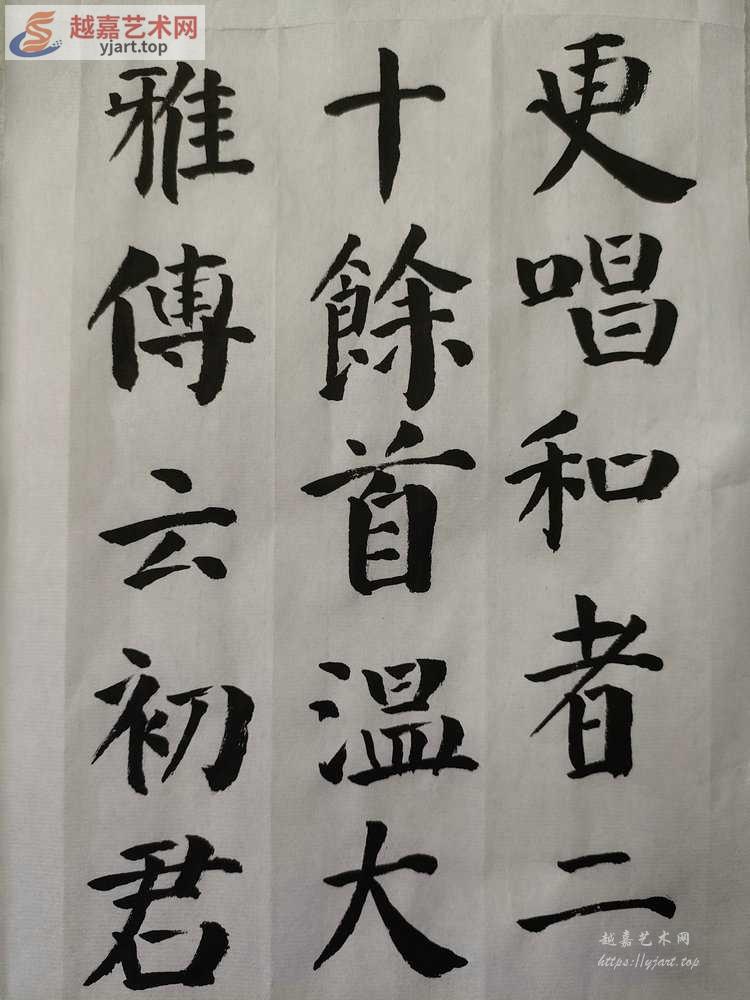 越嘉艺术网
yjart.top
更唱和者二
十餘首温大
雅傅云初君
越嘉艺术网
https://yjart.top